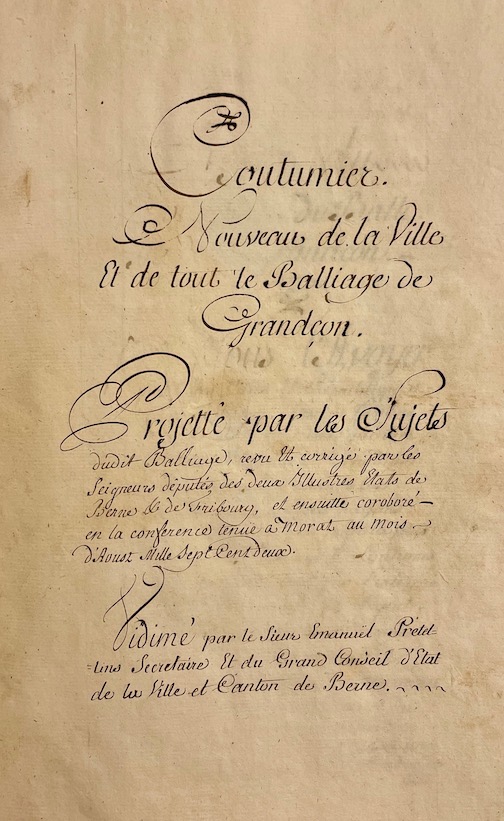 Coutumier.
Nouveau de la Ville
Et de tout le Balliage de
Grandçon.
Projetté par les Sujets
dudit Balliage, revu Et corrigé par les
Seigneurs députés des deux Illustres Etats de
Berne & de Fribourg, et ensuitte coroboré
en la conference tenue a Morat au mois
d'Aoust Mille Sept Cent deux.
Vidimé par le Sieur Emanuël
Secretaire Et du Grand Conseil d'Etat
de la Ville et Canton de Berne.